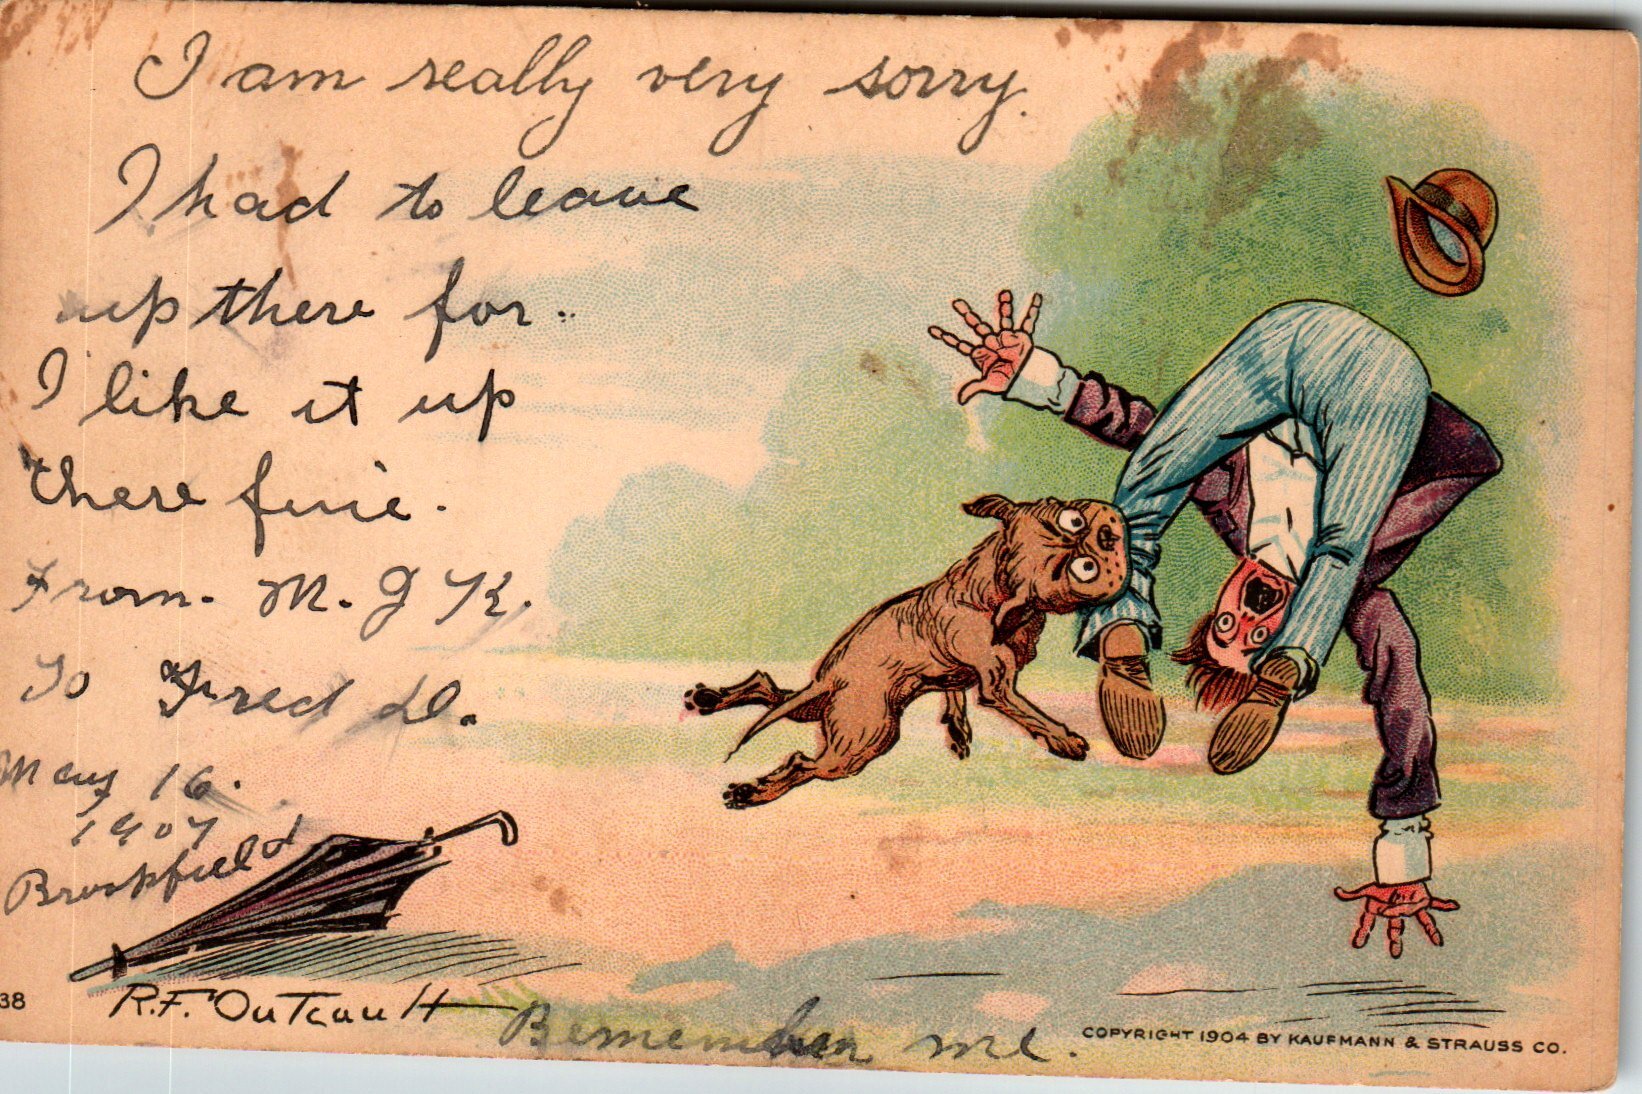 I am really very sorry.
I had to leave
up there for..
I like it up
there fine.
From. M. J K.
To Fred D.
May 16.
1907
Brookfield
38
R.F. Outcault
Remember me.
COPYRIGHT 1904 BY KAUFMANN & STRAUSS CO.